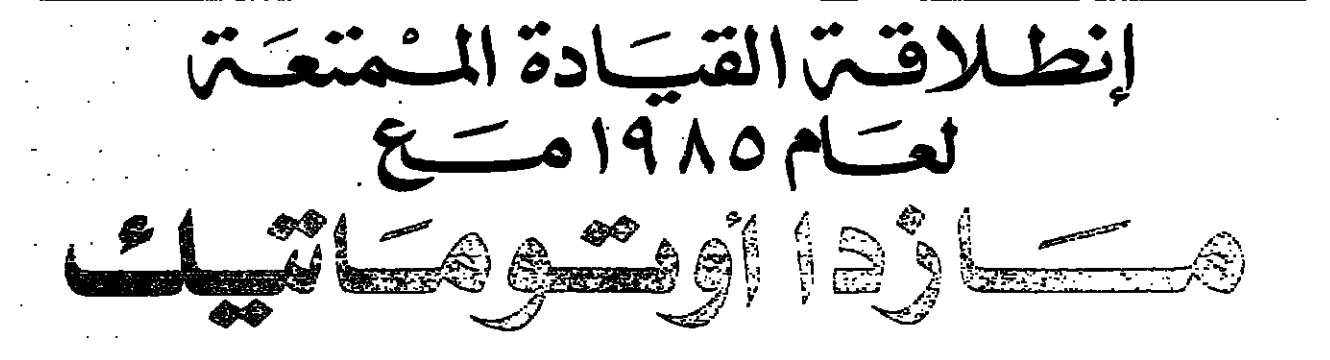 إنطلاقة القيَادة الممْتعَة
لعَام ١٩٨٥ مَع
مَازدا أوتومَاتيك